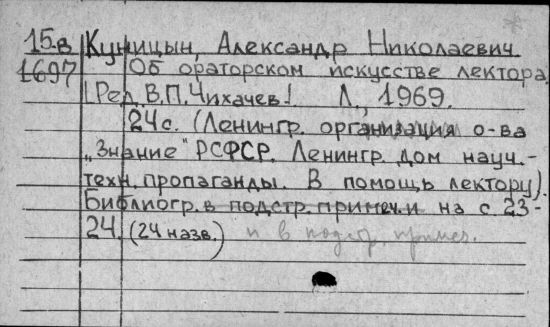 15.в Куницын, Александр Николаевич.
1697 Об ораторском искусстве лектора.
[Ред. В.П. Чихачев]. Л., 1969.
24 с. (Ленингр. организация о-ва
„Знание" РСФСР. Ленингр. дом науч.-
техн. пропаганды. В помощь лектору).
Библиогр. в подстр. примеч. и на с. 23-
24. (24 назв.) и в подстр. примеч.